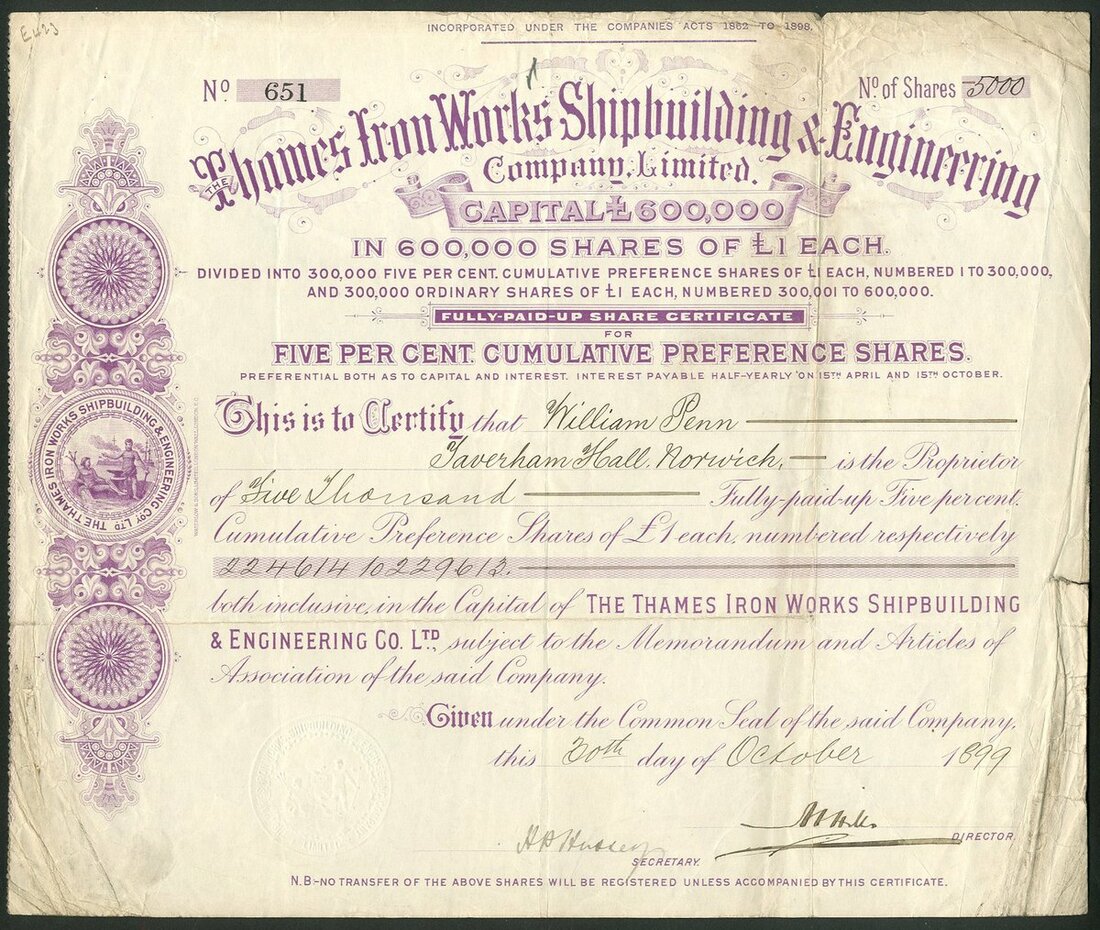 E423
INCORPORATED UNDER THE COMPANIES ACTS 1862 TO 1898.
No 651
No. of Shares 5000
THE Thames Iron Works Shipbuilding & Engineering
Company, Limited.
CAPITAL £600,000
IN 600,000 SHARES OF £1 EACH.
DIVIDED INTO 300,000 FIVE PER CENT. CUMULATIVE PREFERENCE SHARES OF £1 EACH, NUMBERED 1 TO 300,000,
AND 300,000 ORDINARY SHARES OF £1 EACH, NUMBERED 300,001 TO 600,000.
FULLY-PAID-UP SHARE CERTIFICATE
FOR
FIVE PER CENT. CUMULATIVE PREFERENCE SHARES.
PREFERENTIAL BOTH AS TO CAPITAL AND INTEREST. INTEREST PAYABLE HALF-YEARLY ON 15TH APRIL AND 15TH OCTOBER.
This is to Certify that William Penn
Taverham Hall, Norwich, is the Proprietor
of Five Thousand Fully-paid-up Five per cent.
Cumulative Preference Shares of £1 each, numbered respectively
224614 to 229613.
both inclusive, in the Capital of THE THAMES IRON WORKS SHIPBUILDING
& ENGINEERING CO. LTD, subject to the Memorandum and Articles of
Association of the said Company.
Given under the Common Seal of the said Company,
this 30th day of October 1899
DIRECTOR.
H P Hussey
SECRETARY.
N.B-NO TRANSFER OF THE ABOVE SHARES WILL BE REGISTERED UNLESS ACCOMPANIED BY THIS CERTIFICATE.
THE THAMES IRON WORKS SHIPBUILDING & ENGINEERING COY LTD